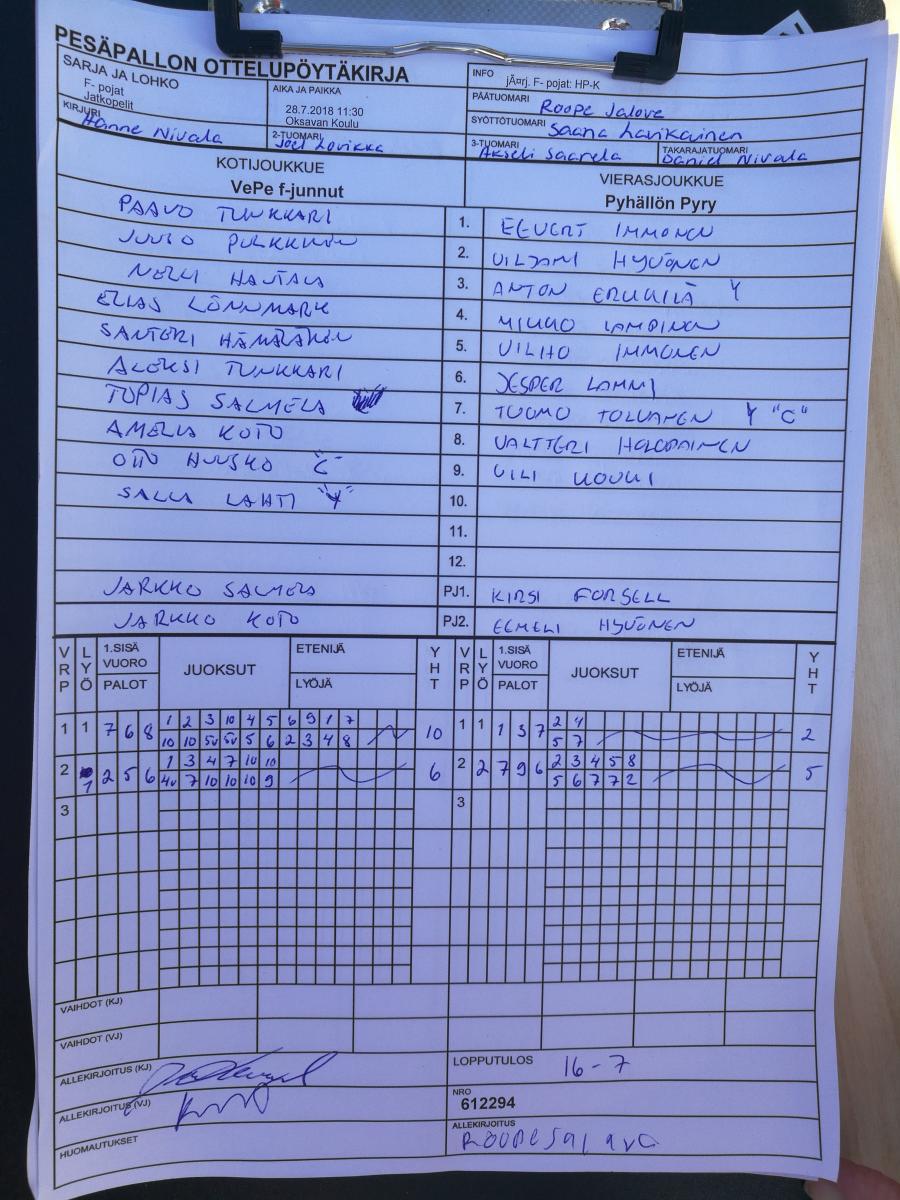 PESÄPALLON OTTELUPÖYTÄKIRJA
SARJA JA LOHKO
F- pojat
Jatkopelit
AIKA JA PAIKKA
28.7.2018 11:30
Oksavan Koulu
INFO jÃ¤rj. F- pojat: HP-K
PÄÄTUOMARI Roope Jalava
SYÖTTÖTUOMARI Saana Lavikainen
KIRJURI Hanne Nivala
2-TUOMARI Joel Lovikka
3-TUOMARI Akseli Saarela
TAKARAJATUOMARI Daniel Nivala
KOTIJOUKKUE
VePe f-junnut
VIERASJOUKKUE
Pyhällön Pyry
PAAVO TUNKKARI 1. EEVERT IMMONEN
JUUSO PULKKINEN 2. VILJAMI HYVÖNEN
NELLI HAUTALA 3. ANTON ERKKILÄ Y
ELIAS LÖNNMARK 4. MIKKO LAMPINEN
SANTERI HÄMÄLÄINEN 5. VILIHO IMMONEN
ALEKSI TUNKKARI 6. JESPER LAMMI
TOPIAS SALMELA 7. TUOMO TOLVANEN Y "C"
AMELIA KOTO 8. VALTTERI HOLOPAINEN
OTTO HUUSKO "C" 9. VILI KOUKI
SALLA LAHTI "Y" 10.
11.
12.
JARKKO SALMELA PJ1. KIRSI FORSELL
JARKKO KOTO PJ2. EEMELI HYVÖNEN
VRP LYÖ 1.SISÄ VUORO PALOT JUOKSUT ETENIJÄ LYÖJÄ YHT VRP LYÖ 1.SISÄ VUORO PALOT JUOKSUT ETENIJÄ LYÖJÄ YHT
1 1 7 6 8 1 2 3 10 4 5 6 9 1 7 10 1 1 1 3 7 2 4 2
10 10 5v 5v 5 6 2 3 4 8 5 7
2 1 2 5 6 1 3 4 7 10 10 6 2 2 7 9 6 2 3 4 5 8 5
4v 7 10 10 10 9 5 6 7 7 2
3 3
VAIHDOT (KJ)
VAIHDOT (VJ)
ALLEKIRJOITUS (KJ)
LOPPUTULOS 16-7
ALLEKIRJOITUS (VJ)
NRO
612294
HUOMAUTUKSET
ALLEKIRJOITUS
ROOPE JALAVA